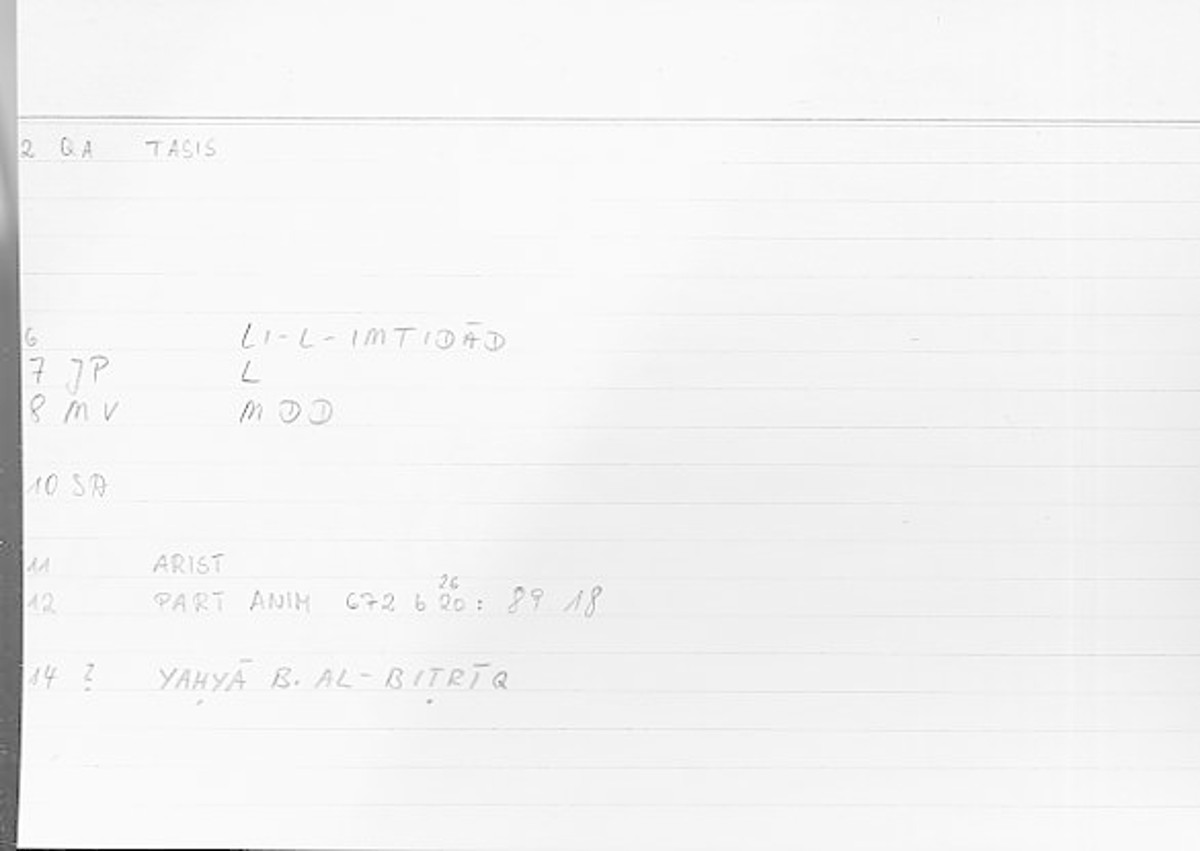 2 QA TASIS
6 LI-L-IMTIDĀD
7 JP L
8 MV MDD
10 SA
11 ARIST
26
12 PART ANIM 672 b 20: 89 18
14 ? YAḤYĀ B. AL-BIṬRĪQ